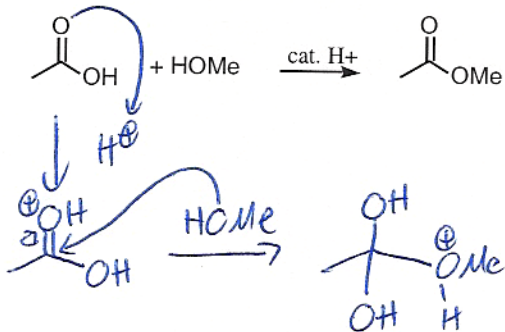 O
OH + HOMe cat. H+ O
OMe
H⊕
⊕
OH
OH
HOMe
OH
⊕
OMe
H
OH